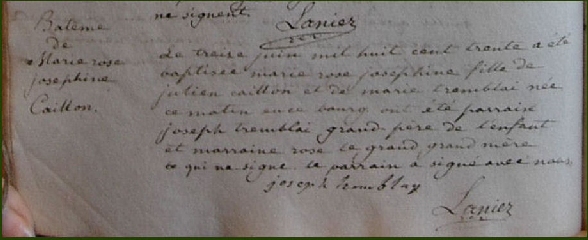 ne signent.
Laniez
Batême
de
Marie rose
josephine
Caitton.
Le treise juin mil huit cent trente a été
baptisée marie rose josephine fille de
julien caitton et de marie tremblai née
ce matin en ce bourg ont été parrain
joseph tremblai grand-père de l'enfant
et marraine rose le grand grand mère
ce qui ne signe le parrain a signé avec nous
joseph tremblay
Laniez